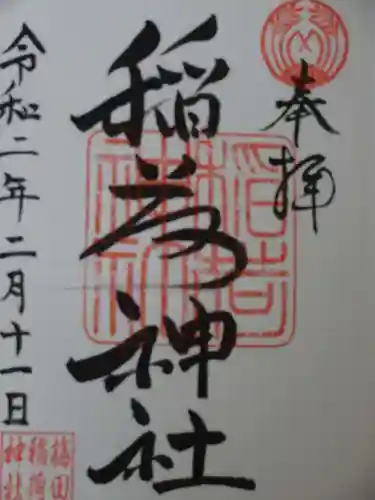 奉拝
稲荷神社
稲荷
神社
令和二年二月十一日
田
稲荷
神社